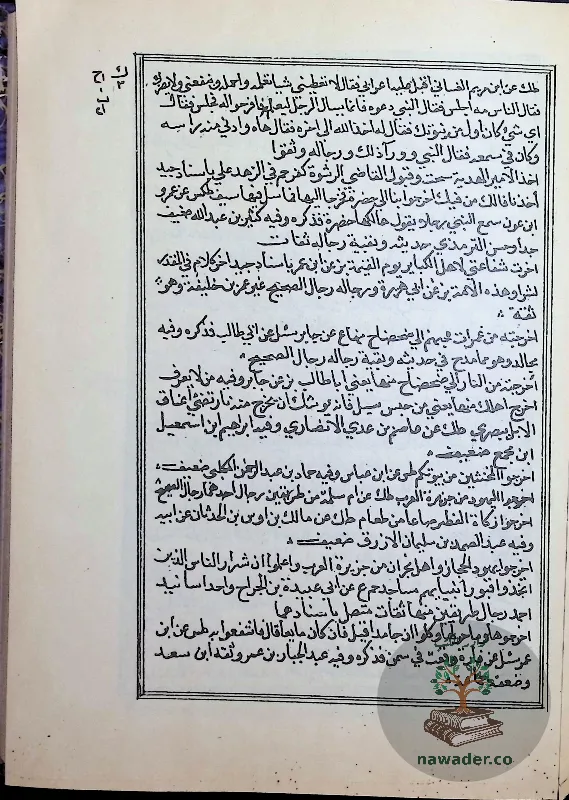 طك عن ابن مريم الغساني اقبل عليه اعرابي فقال لا تعطيني شيا تعلمه واحمله وينفعني ولا يضرك
فقال الناس مه اجلس فقال النبي دعوه فانما يسال الرجل ليعلم فافرجوا له فجلس فقال
اي شيء كان اول من نبوتك فقال له اخذ الله الى اخره فقال هاه وادلي منه راسه
وكان في سمعه فقال النبي وورآ ذلك ورجاله وثقوا
اخذ الامير الهدية سحت وقبول القاضي الرشوة كفر حم في الزهد علي باسناد جيد
أخذنا فالك من فيك اخرجوا بنا الى خضرة فخرجوا اليها فما سل فيها سيف طكس عن عمرو
ابن عوف سمع النبي رجلا يقول هاكها خضرة فذكره وفيه كثير بن عبد الله ضعيف
جدا وحسن الترمذي حديثه وبقية رجاله ثقات
اخرت شفاعتي لاهل الكبائر يوم القيمة بز عن ابن عمر باسناد جيد اخر كلام في القدر
لشرار هذه الامة بز عن ابي هريرة ورجاله رجال الصحيح غير عمر بن خليفة وهو
ثقة
اخرجته من غمرات جهنم الى ضحضاح منها ع عن جابر سئل عن ابي طالب فذكره وفيه
مجالد وهو ممن مدح في حديثه وبقية رجاله رجال الصحيح
اخرجته من النار الى ضحضاح منها يعني ابا طالب بز عن جابر وفيه من لا يعرف
اخرج اهلك منها يعني بن حبس سيل فانه يوشك ان يخرج منه نار تضئ اعناق
الابل ببصرى طك عن عاصم بن عدي الانصاري وفيه ابراهيم ابن اسمعيل
ابن مجمع ضعيف
اخرجوا المخنثين من بيوتكم طس عن ابن عباس وفيه حماد بن عبد الرحمن الكلبي ضعيف
اخرجوا اليهود من جزيرة العرب طك عن ام سلمة من طريقين رجال احدهما رجال الصحيح
اخرجوا زكاة الفطر صاعا من طعام طك عن مالك بن اوس بن الحدثان عن ابيه
وفيه عبد الصمد بن سليمان الازرق ضعيف
اخرجوا يهود الحجاز واهل نجران من جزيرة العرب واعلموا ان شرار الناس الذين
اتخذوا قبور انبيائهم مساجد حم ع عن ابي عبيدة بن الجراح واحد اسانيد
احمد رجال طريقين منها ثقات متصل باسنادهما
اخرجوها وما حولها وكلوا ان جامدا قيل فان كان مايعا قال فانتفعوا به طس عن ابن
عمر سئل عن فارة وقعت في سمن فذكره وفيه عبد الجبار بن عمر وثقه ابن سعد
وضعفه
nawader.co